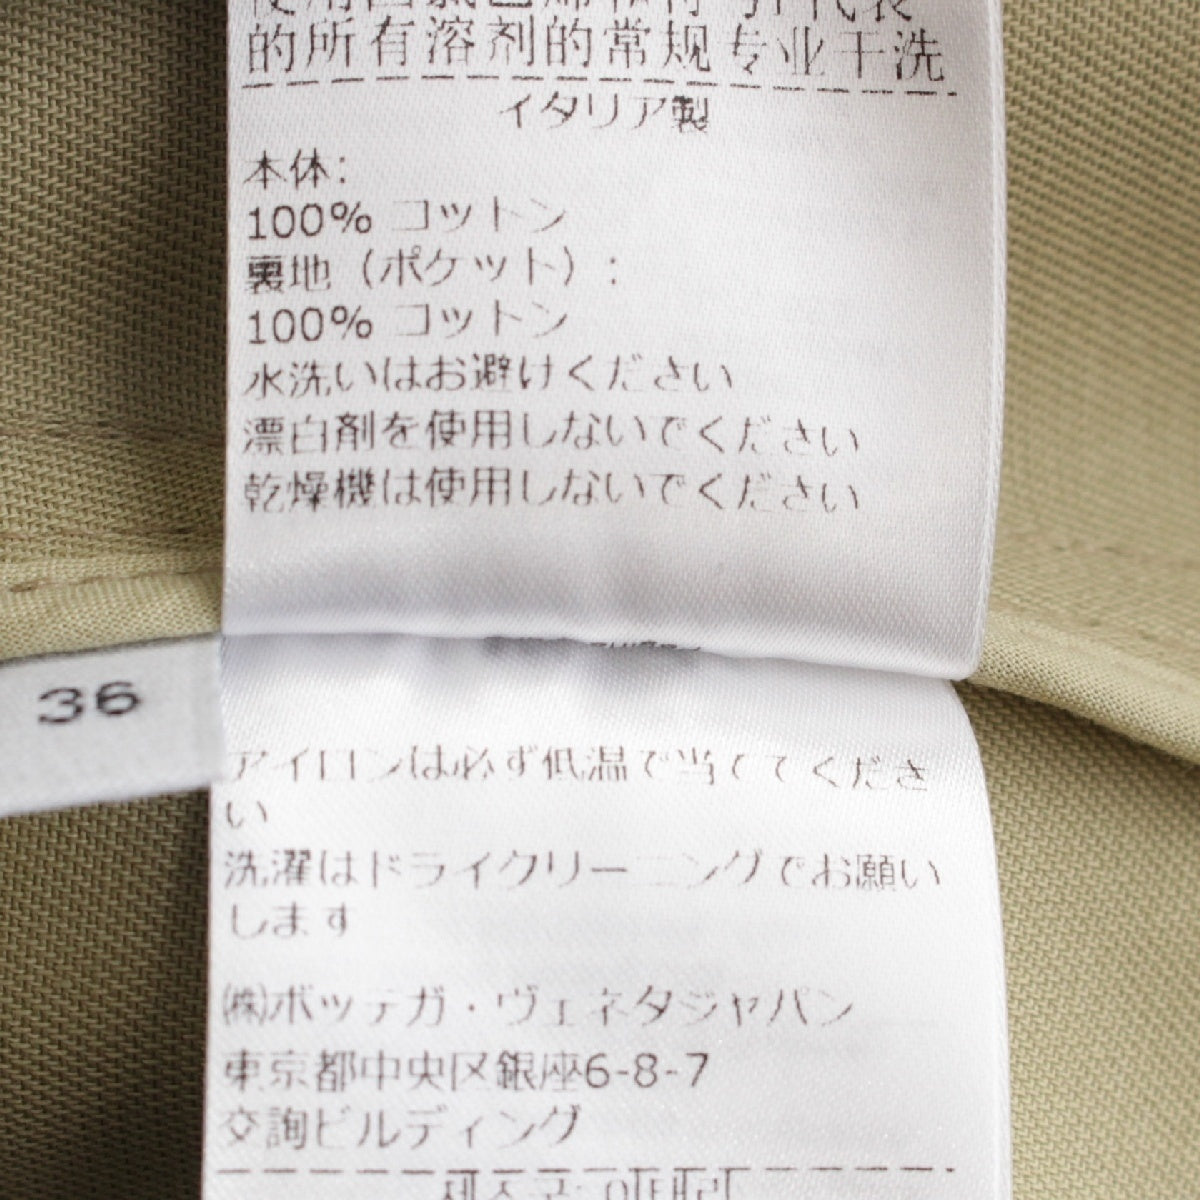 的所有溶剂的常规专业干洗
イタリア製
本体:
100% コットン
裏地（ポケット）:
100% コットン
水洗いはお避けください
漂白剤を使用しないでください
乾燥機は使用しないでください
36
アイロンは必ず低温で当ててくださ
い
洗濯はドライクリーニングでお願い
します
㈱ボッテガ・ヴェネタジャパン
東京都中央区銀座6-8-7
交詢ビルディング